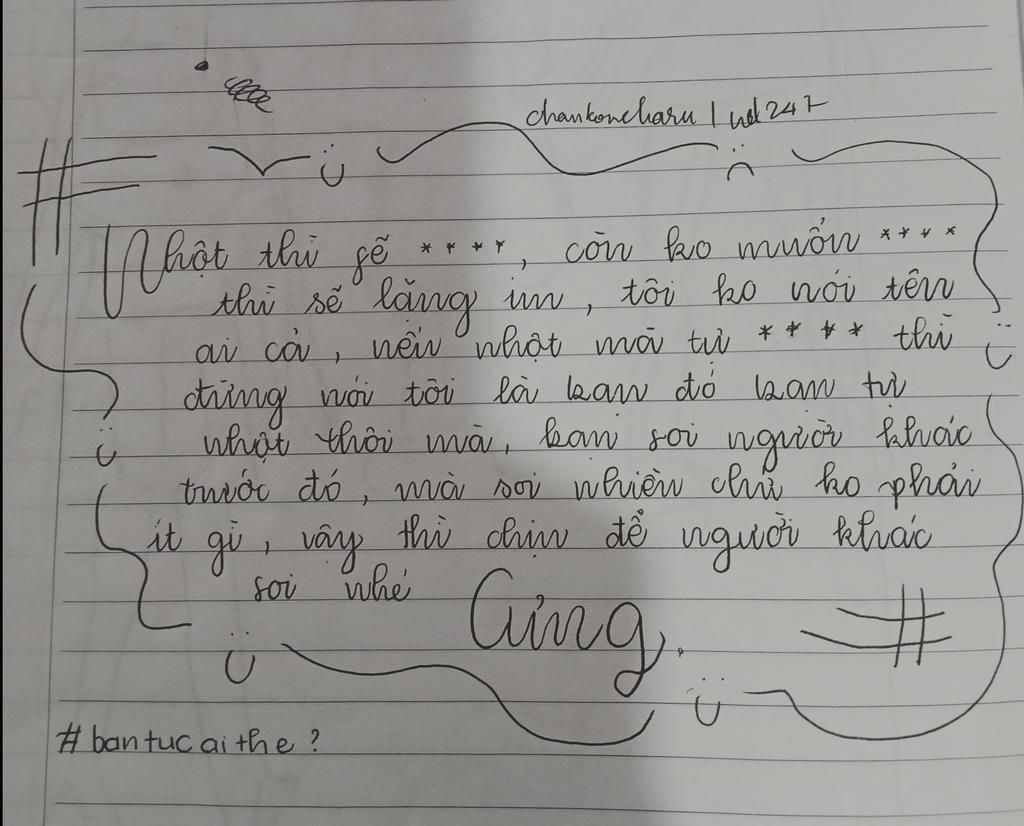 chankoncharu | nd247
Nhột thì sẽ ****, còn ko muốn ****
thì sẽ lặng im, tôi ko nói tên
ai cả, nếu nhột mà tự **** thì
đừng nói tôi là bạn đó bạn tự
nhột thôi mà, bạn soi người khác
trước đó, mà soi nhiều chứ ko phải
ít gì, vậy thì chịu để người khác
soi nhé Cưng.
#bantucaithe?